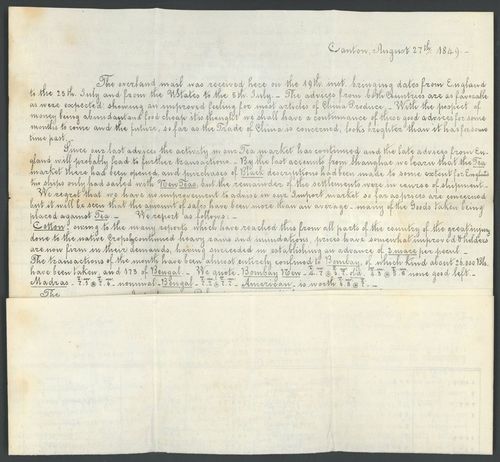 Canton, August 27th 1849.-
The overland mail was received here on the 19th inst. bringing dates from England
to the 25th July and from the UStates to the 5th July.- The advices from both Countries are as favorable
as were expected: showing an improved feeling for most articles of China Produce.- With the prospect of
money being abundant and look cheap it is thought we shall have a continuance of these good advices for some
months to come and the future, so far as the Trade of China is concerned, looks brighter than it has for some
time past.-
Since our last advices the activity in our Tea market has continued and the late advices from En-
gland will probably lead to further transactions.- By the last accounts from Shanghae we learn that the Tea
market there had been opened, and purchases of Black descriptions had been made to some extent for England
two ships only had sailed with New Teas, but the remainder of the settlements were in course of shipment.-
We regret that we have no improvement to advise in our Import market so far as prices are concerned
but it will be seen that the amount of sales have been more than an average - many of the Goods taken being
placed against Tea.- We report as follows:-
Cotton: owing to the many reports which have reached this from all parts of the country of the great injury
done to the native Crops by continued heavy rains and inundations, prices have somewhat improved & holders
are now firm in their demands, having succeeded in establishing an advance of 2 mace per pecul.-
The transactions of the month have been almost entirely confined to Bombay, of which kind about 26,000 Bls.
have been taken, and 173 of Bengal.- We quote. Bombay New old none good left.-
Madras - nominal - Bengal - American, is worth
The